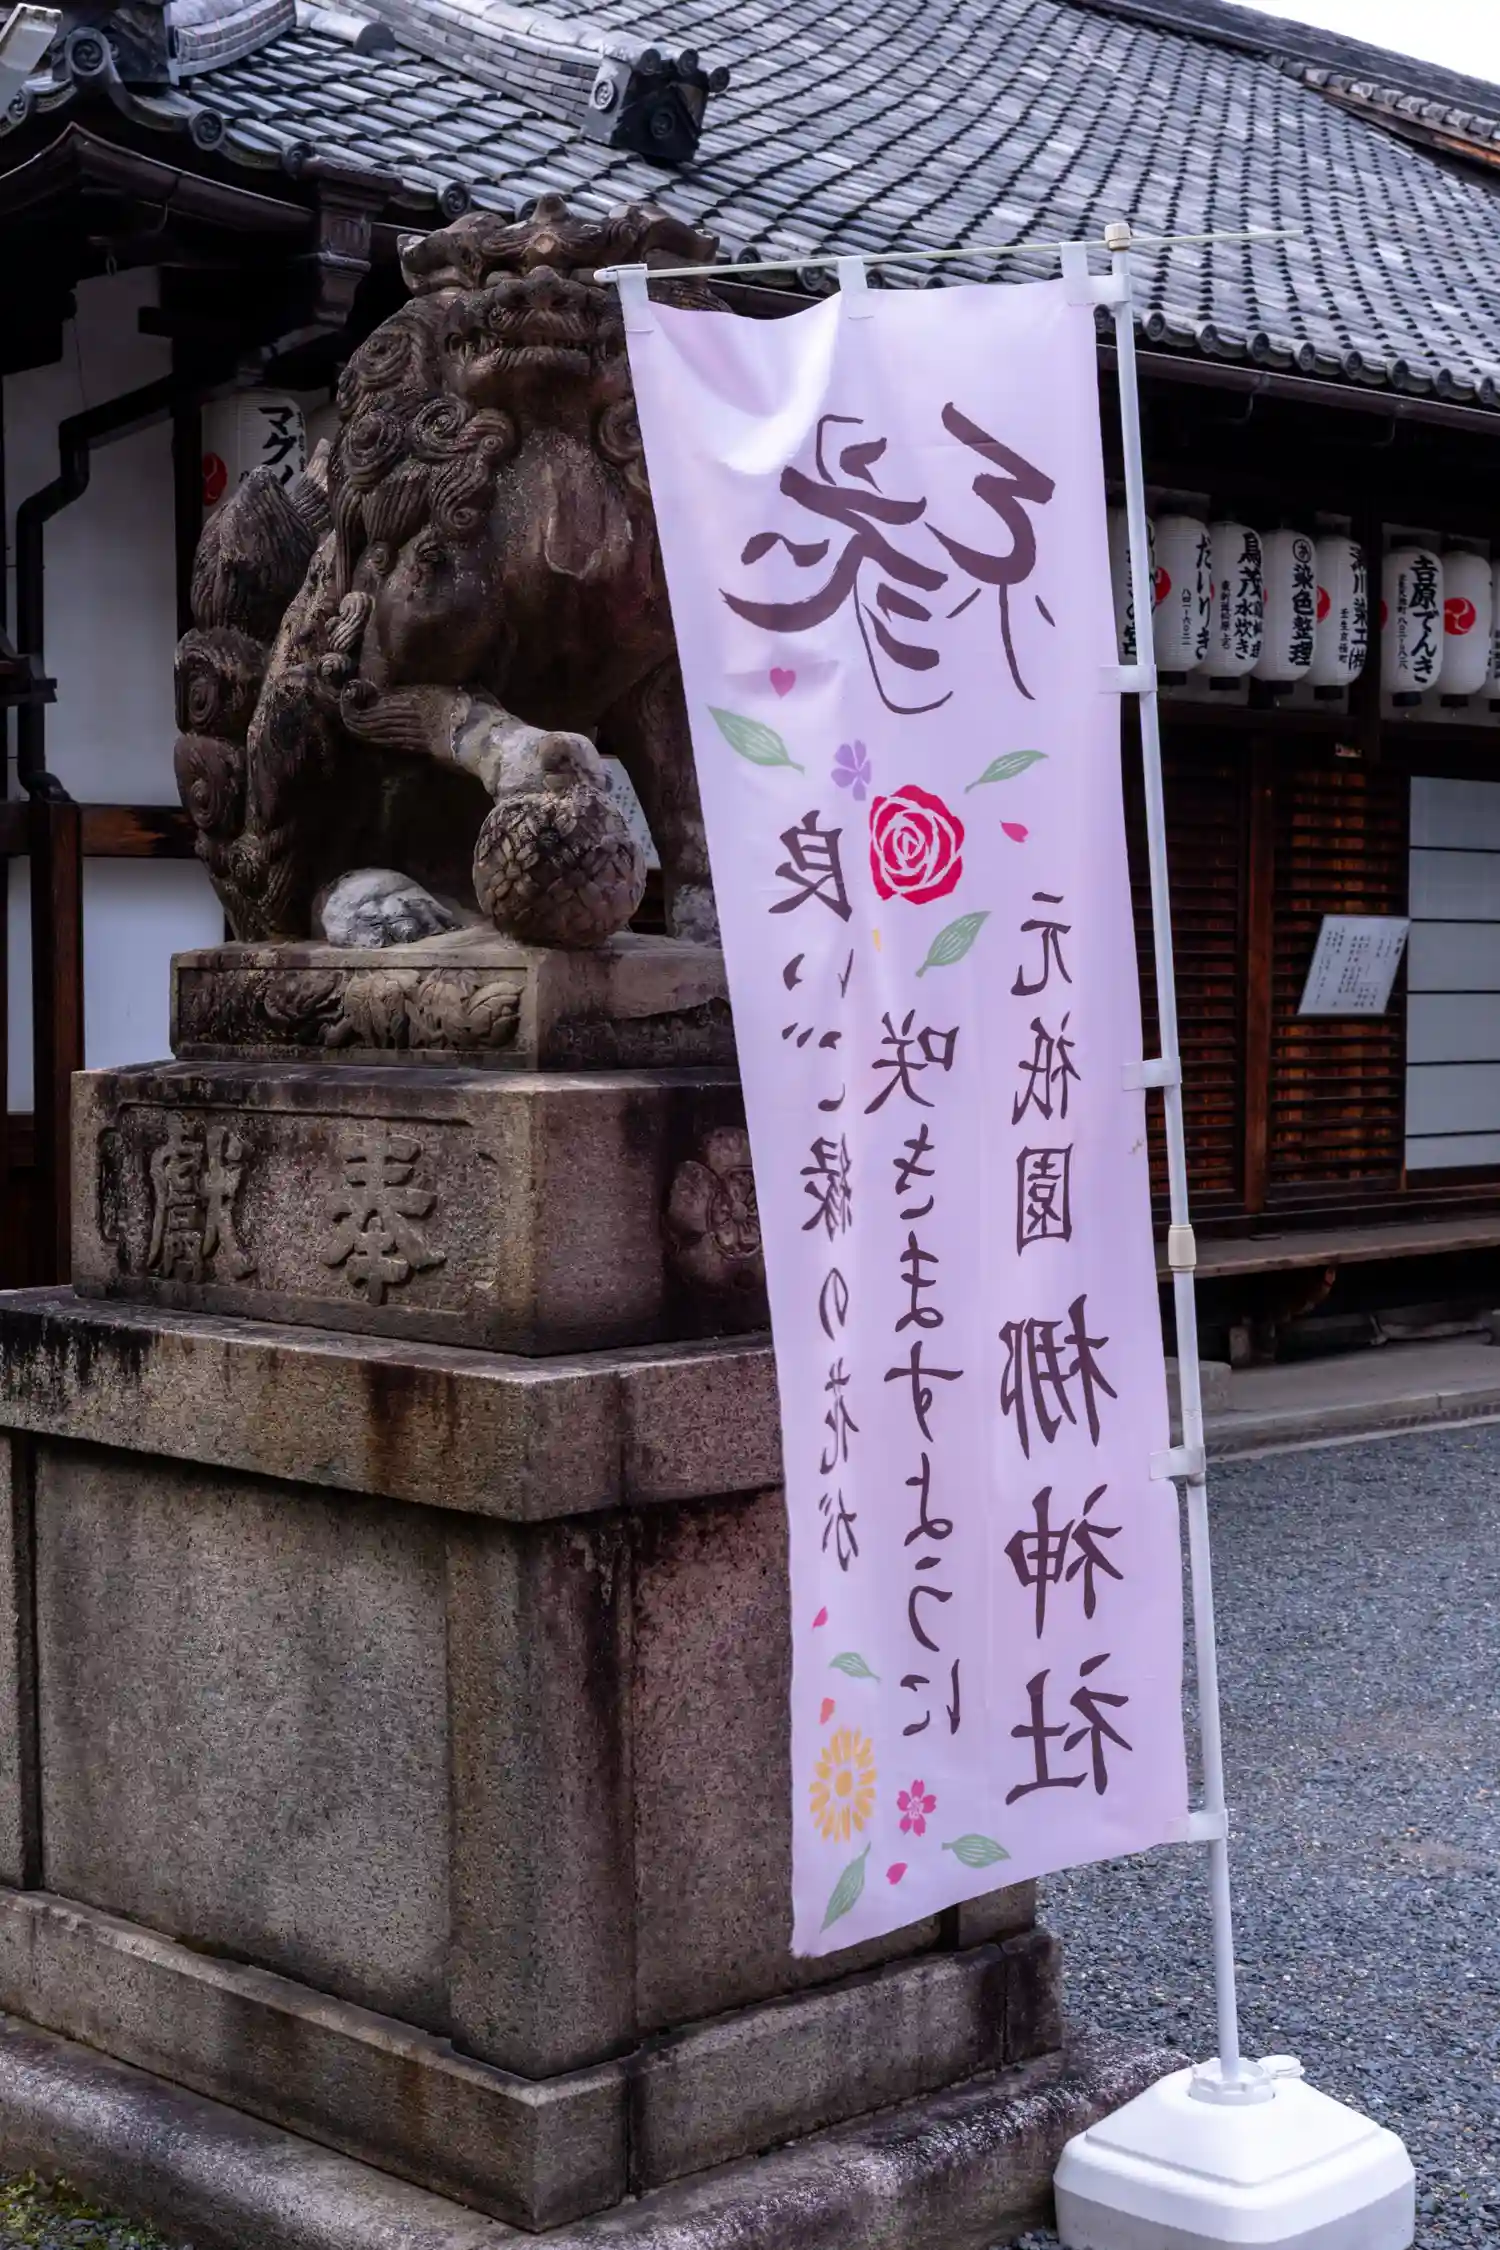 縁
良いご縁の花が
咲きますように
元祇園 梛神社
奉獻
マグ
だいりき
鳥茂水炊き
染色整理
川染工㈱
吉原でんき